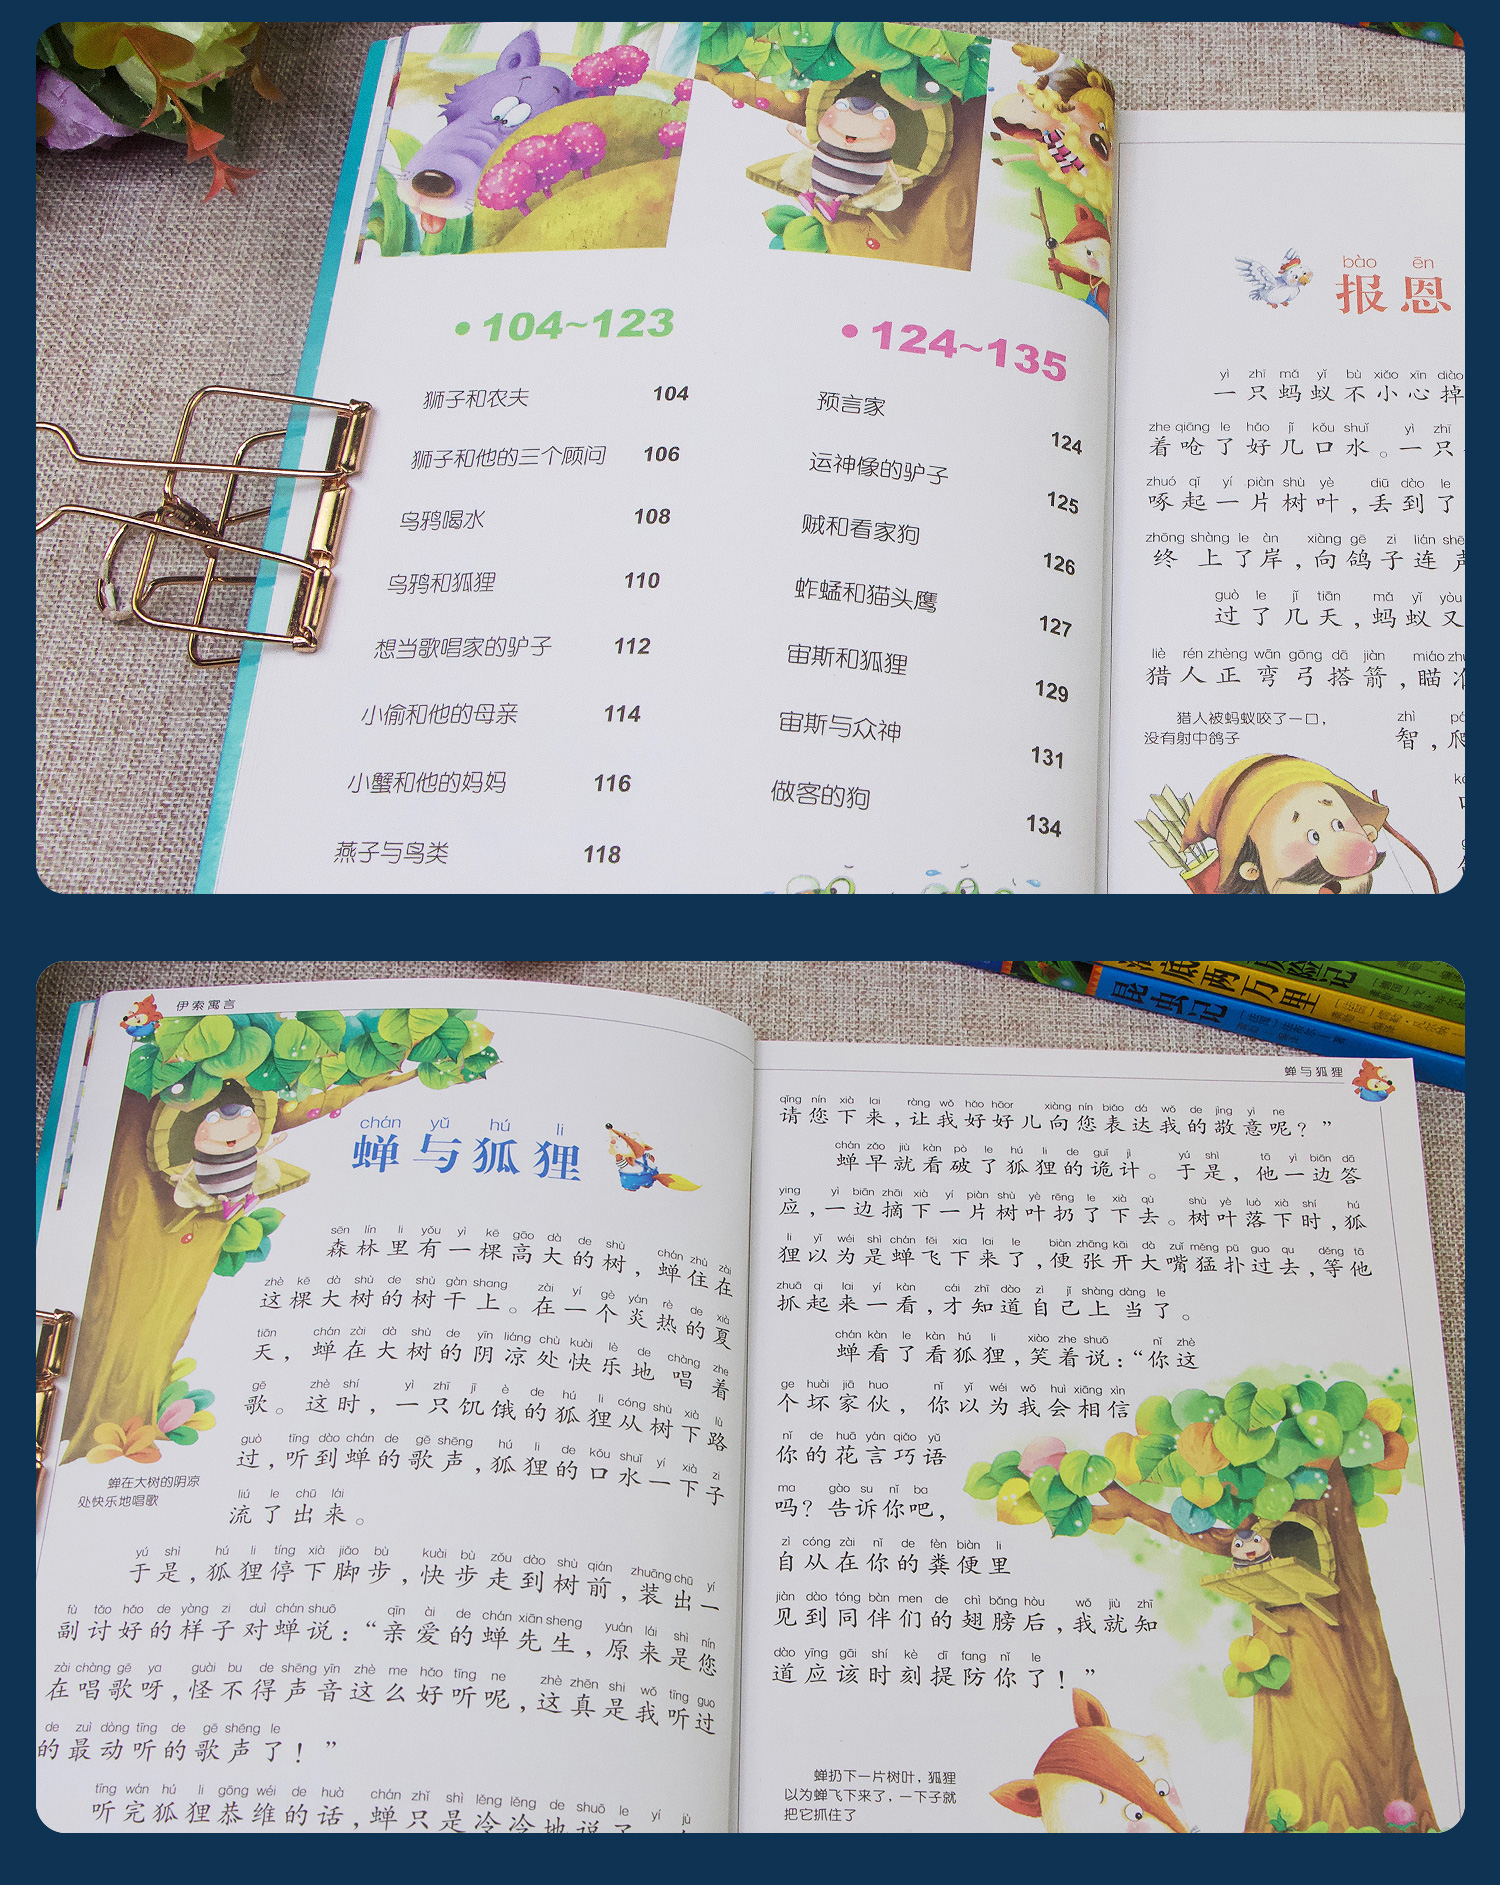 104~123
狮子和农夫 104
狮子和他的三个顾问 106
乌鸦喝水 108
乌鸦和狐狸 110
想当歌唱家的驴子 112
小偷和他的母亲 114
小蟹和他的妈妈 116
燕子与鸟类 118
124~135
预言家 124
运神像的驴子 125
贼和看家狗 126
蚱蜢和猫头鹰 127
宙斯和狐狸 129
宙斯与众神 131
做客的狗 134
bào ēn
报恩
yì zhī mǎ yǐ bù xiǎo xīn diào
一只蚂蚁不小心掉
zhe qiāng le hǎo jǐ kǒu shuǐ yì zhī
着呛了好几口水。一只
zhuó qǐ yí piàn shù yè diū dào le
啄起一片树叶,丢到了
zhōng shàng le àn xiàng gē zi lián
终上了岸,向鸽子连
guò le jǐ tiān mǎ yǐ yòu
过了几天,蚂蚁又
liè rén zhèng wān gōng dā jiàn miáo
猎人正弯弓搭箭,瞄
zhì
智,爬
猎人被蚂蚁咬了一口,
没有射中鸽子
伊索寓言
chán yǔ hú li
蝉与狐狸
sēn lín li yǒu yì kē gāo dà de shù chán zhù zài
森林里有一棵高大的树,蝉住在
zhè kē dà shù de shù gàn shang zài yí gè yán rè de xià
这棵大树的树干上。在一个炎热的夏
tiān chán zài dà shù de yīn liáng chù kuài lè de chàng zhe
天,蝉在大树的阴凉处快乐地唱着
gē zhè shí yì zhī jī è de hú li cóng shù xià lù
歌。这时,一只饥饿的狐狸从树下路
guò tīng dào chán de gē shēng hú li de kǒu shuǐ yí xià zi
过,听到蝉的歌声,狐狸的口水一下子
liú le chū lái
流了出来。
蝉在大树的阴凉
处快乐地唱歌
yú shì hú li tíng xià jiǎo bù kuài bù zǒu dào shù qián zhuāng chū yí
于是,狐狸停下脚步,快步走到树前,装出一
fù tǎo hǎo de yàng zi duì chán shuō qīn ài de chán xiān sheng yuán lái shì nín
副讨好的样子对蝉说:“亲爱的蝉先生,原来是您
zài chàng gē ya guài bu de shēng yīn zhè me hǎo tīng ne zhè zhēn shi wǒ tīng guo
在唱歌呀,怪不得声音这么好听呢,这真是我听过
de zuì dòng tīng de gē shēng le
的最动听的歌声了!”
tīng wán hú li gōng wéi de huà chán zhǐ shì lěng lěng de shuō le yí jù
听完狐狸恭维的话,蝉只是冷冷地说了
昆虫记
海底两万里
蝉与狐狸
qǐng nín xià lai ràng wǒ hǎo hāor xiàng nín biǎo dá wǒ de jìng yì ne
请您下来,让我好好儿向您表达我的敬意呢?”
chán zǎo jiù kàn pò le hú li de guǐ jì yú shì tā yì biān dā
蝉早就看破了狐狸的诡计。于是,他一边答
ying yì biān zhāi xià yí piàn shù yè rēng le xià qù shù yè luò xià shí hú
应,一边摘下一片树叶扔了下去。树叶落下时,狐
li yǐ wéi shì chán fēi xia lai le biàn zhāng kāi dà zuǐ měng pū guo qu děng tā
狸以为是蝉飞下来了,便张开大嘴猛扑过去,等他
zhuā qi lai yí kàn cái zhī dào zì jǐ shàng dàng le
抓起来一看,才知道自己上当了。
chán kàn le kàn hú li xiào zhe shuō nǐ zhè
蝉看了看狐狸,笑着说:“你这
ge huài jiā huo nǐ yǐ wéi wǒ huì xiāng xìn
个坏家伙,你以为我会相信
nǐ de huā yán qiǎo yǔ
你的花言巧语
ma gào su nǐ ba
吗?告诉你吧,
zì cóng zài nǐ de fèn biàn li
自从在你的粪便里
jiàn dào tóng bàn men de chì bǎng hòu wǒ jiù zhī
见到同伴们的翅膀后,我就知
dào yīng gāi shí kè dī fang nǐ le
道应该时刻提防你了!”
蝉扔下一片树叶,狐狸
以为蝉飞下来了,一下子就
把它抓住了